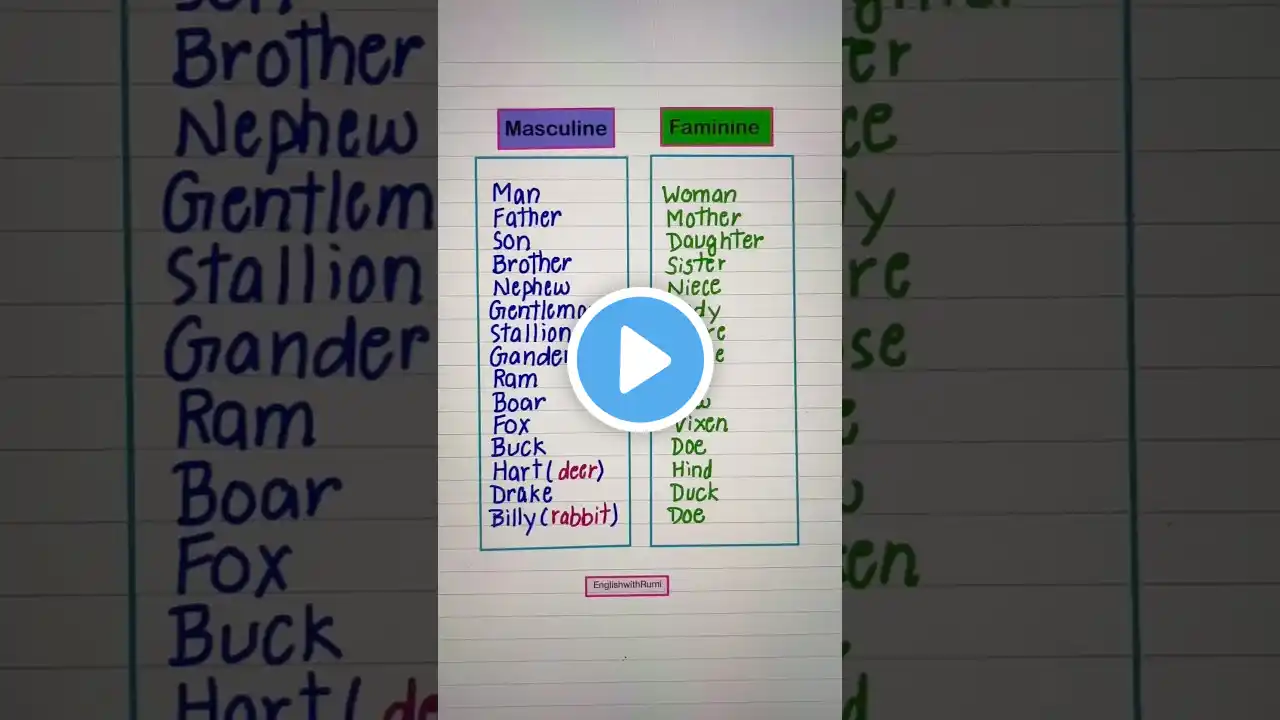 Masculine Faminine
Man Woman
Father Mother
Son Daughter
Brother Sister
Nephew Niece
Stallion
Ram
Boar
Fox Vixen
Buck Doe
Hart (deer) Hind
Drake Duck
Billy (rabbit) Doe
EnglishwithRumi
Brother
Nephew
Stallion
Gander
Ram
Boar
Fox
Buck